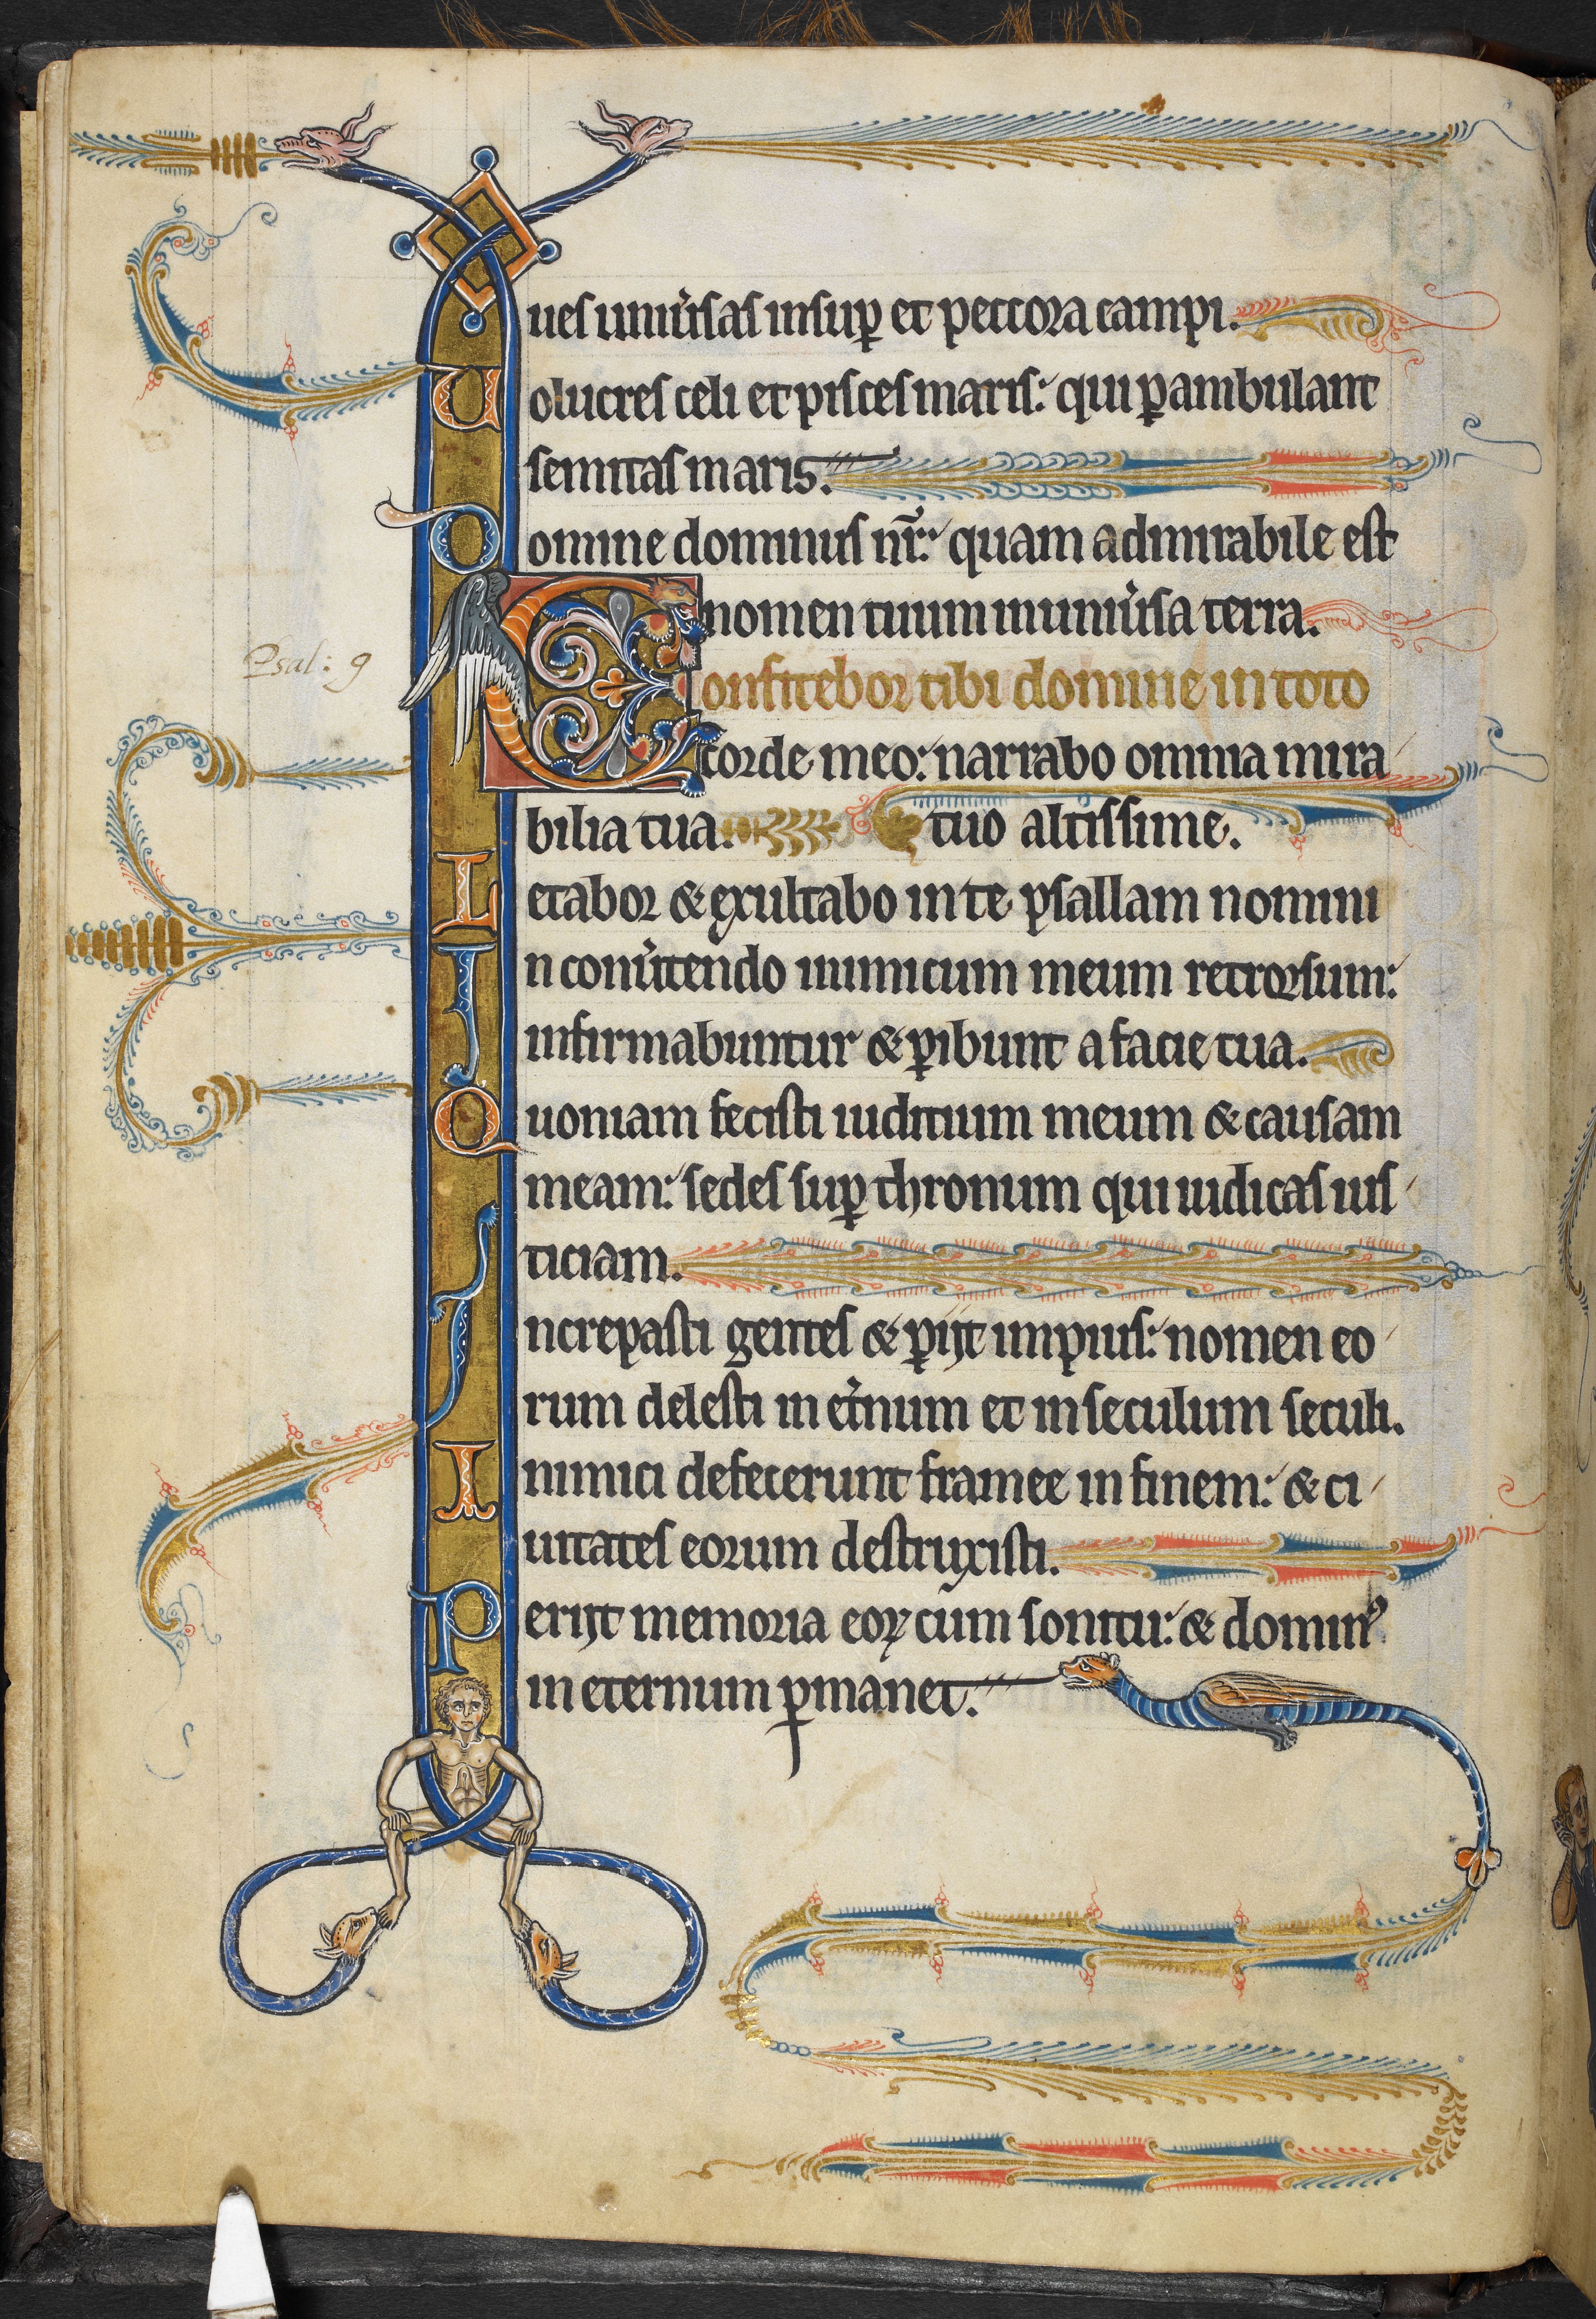 ues uniu'sas insup et peccora campi.
Uolucres celi et pisces maris: qui pambulant
semitas maris.
Domine dominus nr̄: quam admirabile est
nomen tuum in uniu'sa terra.
Psal: 9
Confitebor tibi domine in toto
corde meo: narrabo omnia mira
bilia tua. tuo altissime.
Letabor & exultabo in te psallam nomini
In conu'tendo inimicum meum retrorsum:
infirmabuntur & pibunt a facie tua.
Quoniam fecisti iuditium meum & causam
meam: sedes sup thronum qui iudicas ius
ticiam.
Increpasti gentes & pijt impius: nomen eo
rum delesti in et'num et in seculum seculi.
Inimici defecerunt framee in finem: & ci
uitates eorum destruxisti.
Perijt memoria eoꝝ cum sonitu: & domin⁹
in eternum pmanet.